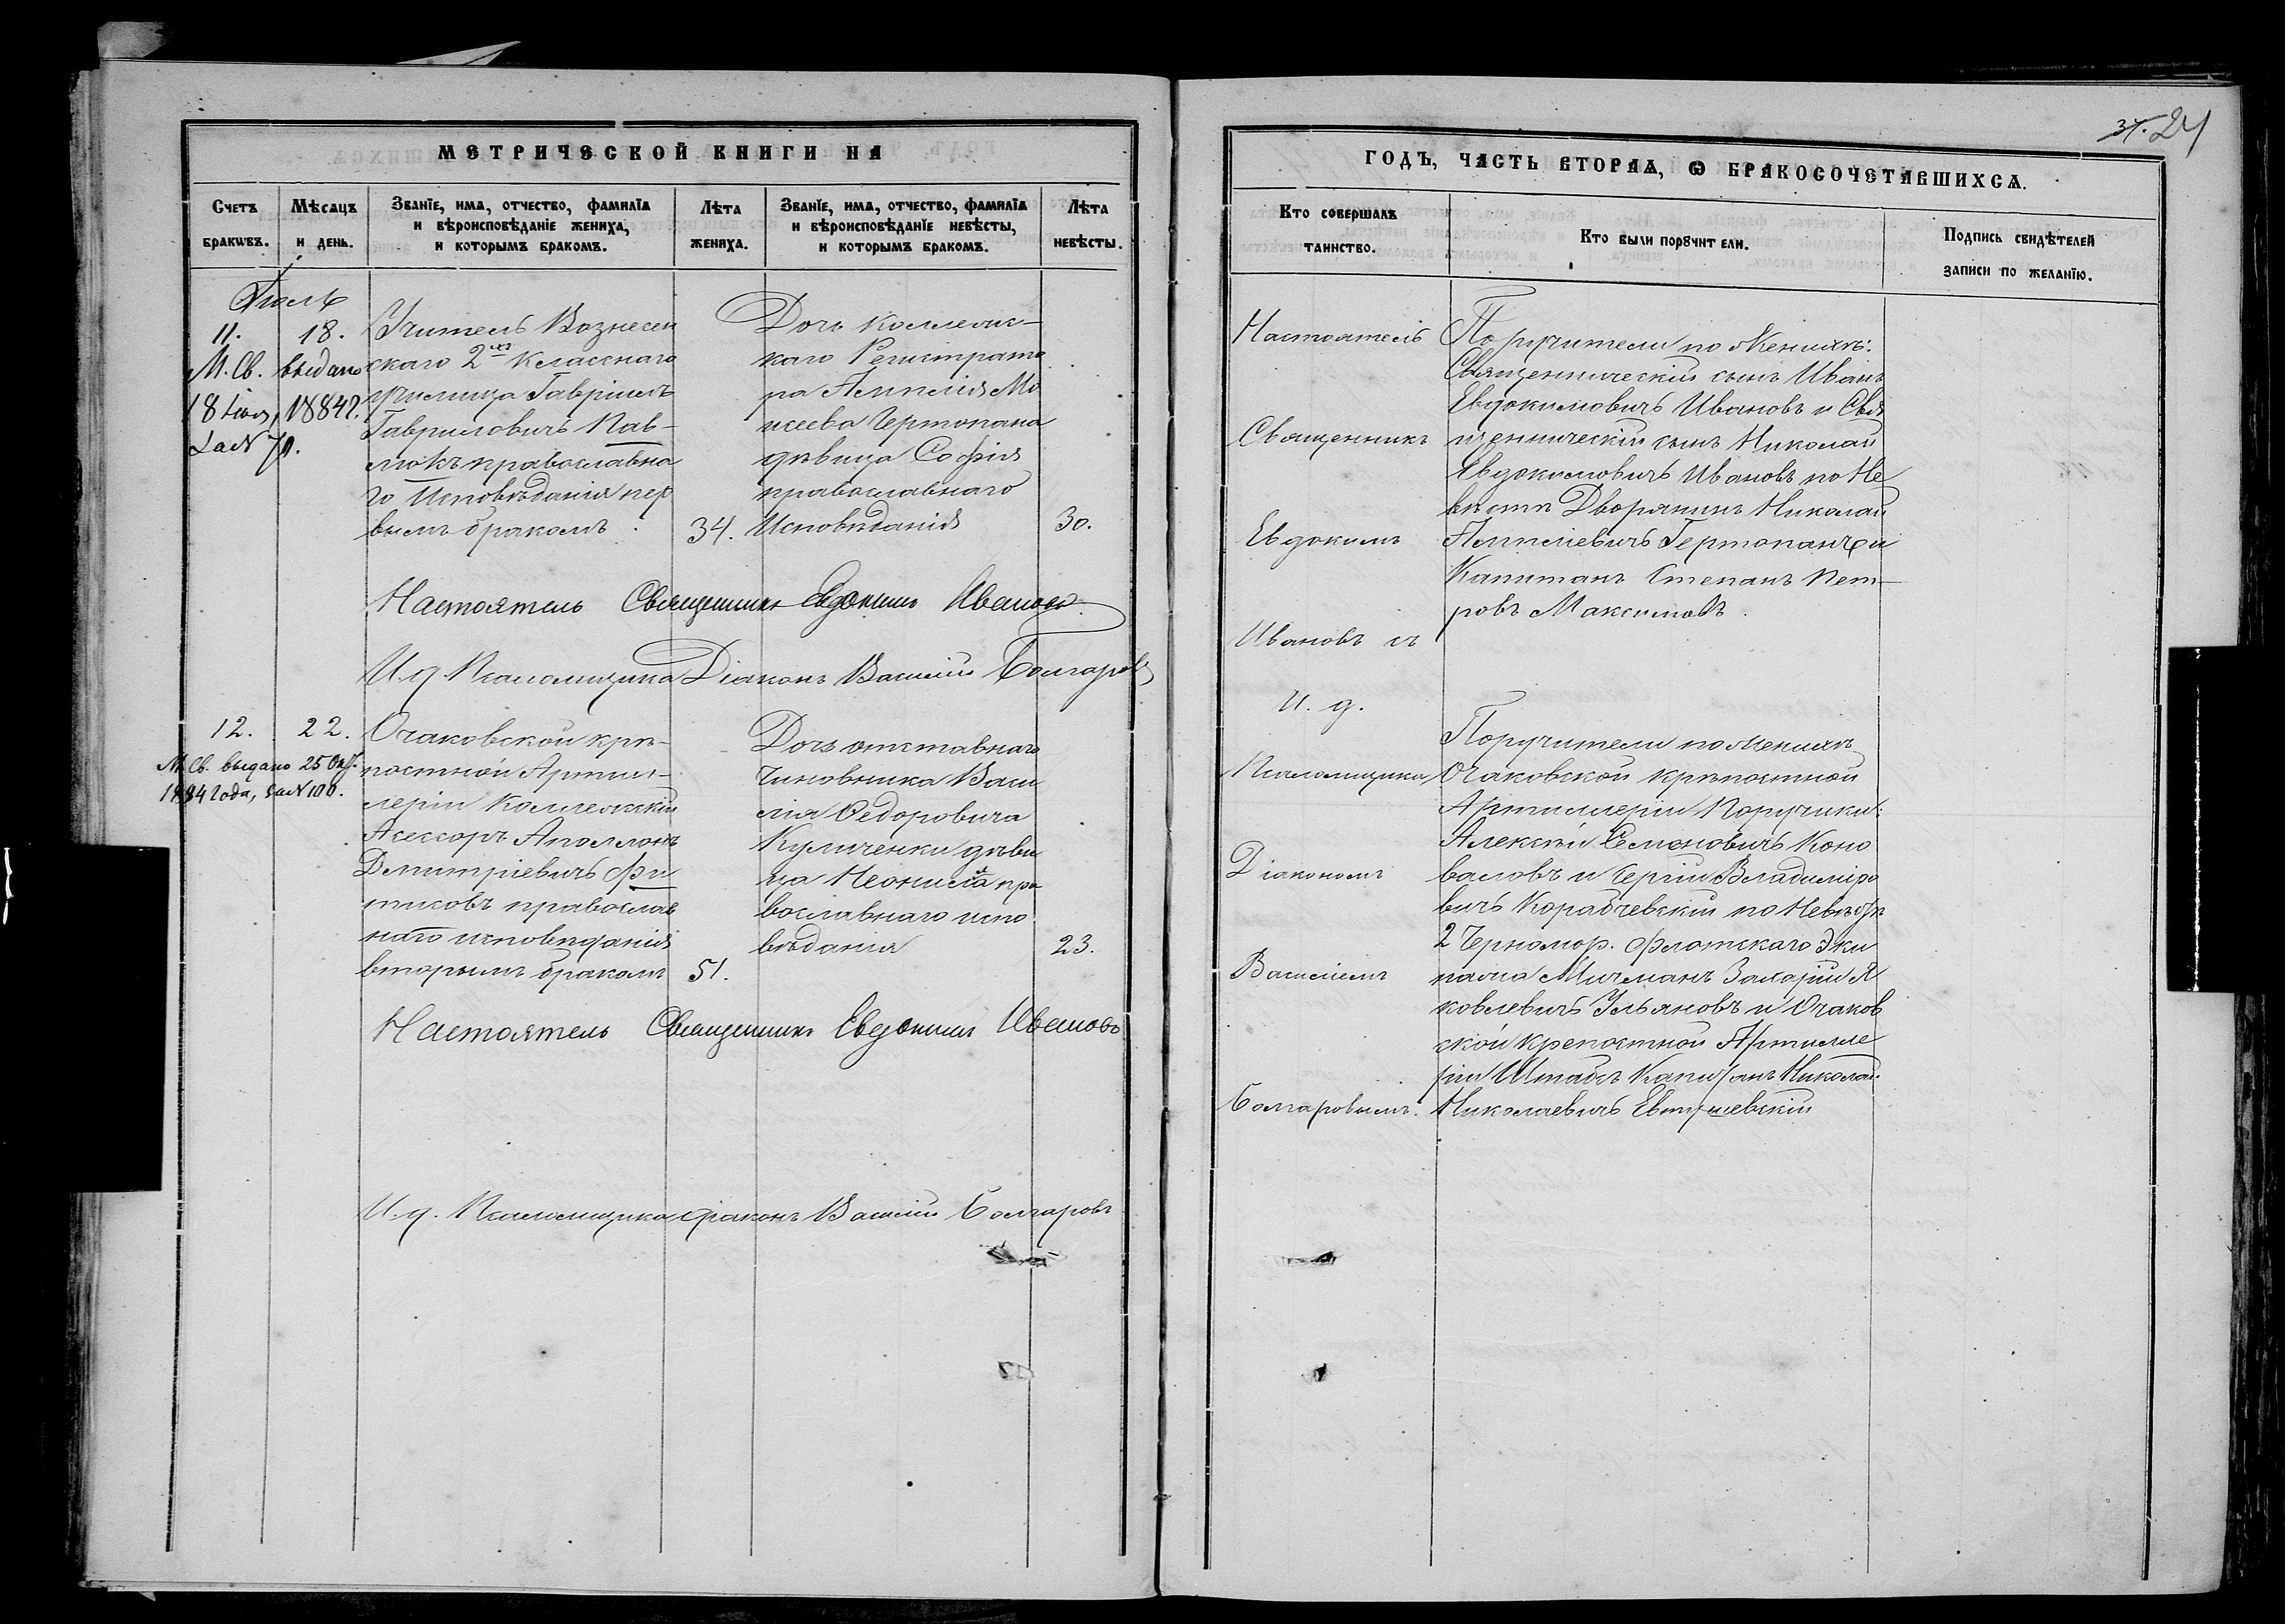 МЕТРИЧЕСКОЙ КНИГИ НА
Счетъ браковъ.
Мѣсяцъ и день.
Званїе, имѧ, отчество, фамилїѧ
и вѣроисповѣданїе жениха,
и которымъ бракомъ.
Лѣта
жениха.
Званїе, имѧ, отчество, фамилїѧ
и вѣроисповѣданїе невѣсты,
и которымъ бракомъ.
Лѣта
невѣсты.
Іюль
11.
18.
М. Св. выдано
18 1884 г.
за № 70.
Учитель Вознесен
скаго 2хъ Класснаго
училища Гавріилъ
Гавриловичъ Пав-
люкъ православна
го Исповѣданія пер
вымъ бракомъ
34.
Дочь коллежс-
каго Регистрато
ра Ампелія Мо
исеева Чертопана
дѣвица Софія
православнаго
Исповѣданія
30.
Настоятель Священникъ Евдокимъ Ивановъ
И. д. Псаломщика Діаконъ Василій Болгаровъ
12.
22.
М. Св. выдано 25 Окт.
1884 года, за № 100.
Очаковской крѣ-
постной Артил-
леріи Коллежскій
Асессоръ Аполлонъ
Дмитріевичъ Фи
тисовъ православ
наго исповѣданія
вторымъ бракомъ
51.
Дочь отставнаго
Чиновника Васи
лія Федоровича
Кульченки дѣви
ца Неонила пра
вославнаго испо
вѣданія
23.
Настоятель Священникъ Евдокимъ Ивановъ
И. д. Псаломщика діаконъ Василій Болгаровъ
24
ГОДЪ, ЧАСТЬ ВТОРАѦ, Ѡ БРАКОСОЧЕТАВШИХСѦ.
Кто совершалъ
таинство.
Кто были порꙋчители.
Подпись свидѣтелей
записи по желанїю.
Настоятель
Священникъ
Евдокимъ
Ивановъ съ
И. д.
Псаломщика
Діакономъ
Василіемъ
Болгаровымъ.
Поручители по Женихѣ:
Священническій сынъ Иванъ
Евдокимовичъ Ивановъ и Свя
щенническій сынъ Николай
Евдокимовичъ Ивановъ по Не
вѣстѣ Дворянинъ Николай
Ампеліевичъ Чертопанъ и
Капитанъ Степанъ Пет-
ровъ Максимовъ.
Поручители по Женихѣ
Очаковской крѣпостной
Артиллеріи Поручики:
Алексѣй Семеновичъ Коно
валовъ и Сергій Владиміро
вичъ Корабчевскій по Невѣстѣ
2 Черномор. флотскаго Эки
пажа Мичманъ Захарій Я
ковлевичъ Ульяновъ и Очаков
ской крепостной Артилле
ріи Штабсъ Капитанъ Николай
Николаевичъ Евтушевскій